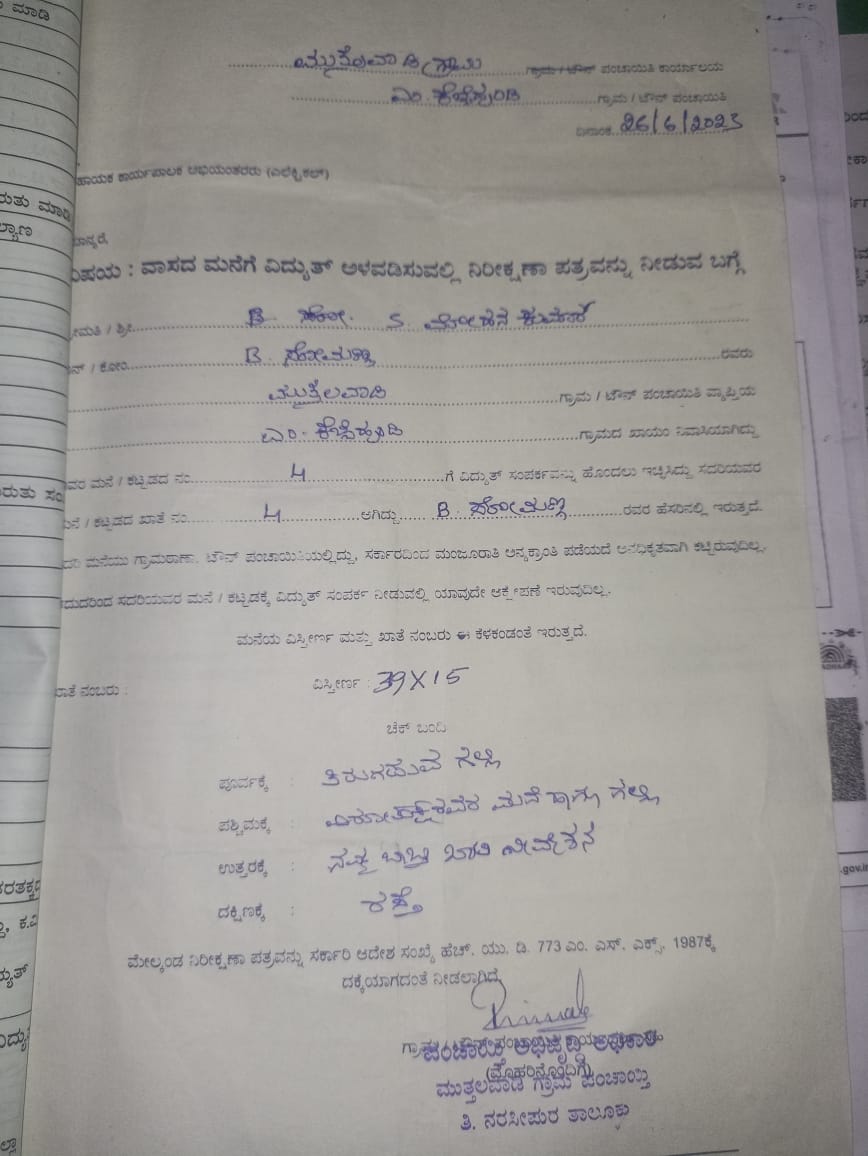 ಗ್ರಾಮ / ಟೌನ್ ಪಂಚಾಯಿತಿ ಕಾರ್ಯಾಲಯ
ಎಂ. ಗ್ರಾಮ / ಟೌನ್ ಪಂಚಾಯಿತಿ
ದಿನಾಂಕ 26/6/2023
ಹಾಯಕ ಕಾರ್ಯಪಾಲಕ ಅಭಿಯಂತರರು (ಎಲೆಕ್ಟ್ರಿಕಲ್)
ಮಾನ್ಯರೆ,
ವಿಷಯ : ವಾಸದ ಮನೆಗೆ ವಿದ್ಯುತ್ ಅಳವಡಿಸುವಲ್ಲಿ ನಿರೀಕ್ಷಣಾ ಪತ್ರವನ್ನು ನೀಡುವ ಬಗ್ಗೆ
ೀಮತಿ / ಶ್ರೀ B. S.
ನ್ / ಕೋಂ B. ಸೋಮಣ್ಣ ರವರು
ಮುತ್ತಲವಾಡಿ ಗ್ರಾಮ / ಟೌನ್ ಪಂಚಾಯಿತಿ ವ್ಯಾಪ್ತಿಯ
ಎಂ. ಗ್ರಾಮದ ಖಾಯಂ ನಿವಾಸಿಯಾಗಿದ್ದು
ವರ ಮನೆ / ಕಟ್ಟಡದ ನಂ. 4 ಗೆ ವಿದ್ಯುತ್ ಸಂಪರ್ಕವನ್ನು ಹೊಂದಲು ಇಚ್ಛಿಸಿದ್ದು ಸದರಿಯವರ
ನೆ / ಕಟ್ಟಡದ ಖಾತೆ ನಂ. 4 ಆಗಿದ್ದು B. ಸೋಮಣ್ಣ ರವರ ಹೆಸರಿನಲ್ಲಿ ಇರುತ್ತದೆ.
ದರಿ ಮನೆಯು ಗ್ರಾಮಠಾಣಾ, ಟೌನ್ ಪಂಚಾಯಿತಿಯಲ್ಲಿದ್ದು, ಸರ್ಕಾರದಿಂದ ಮಂಜೂರಾತಿ ಅನ್ಯಕ್ರಾಂತಿ ಪಡೆಯದೆ ಅನಧಿಕೃತವಾಗಿ ಕಟ್ಟಿರುವುದಿಲ್ಲ.
ದುದರಿಂದ ಸದರಿಯವರ ಮನೆ / ಕಟ್ಟಡಕ್ಕೆ ವಿದ್ಯುತ್ ಸಂಪರ್ಕ ನೀಡುವಲ್ಲಿ ಯಾವುದೇ ಆಕ್ಷೇಪಣೆ ಇರುವುದಿಲ್ಲ.
ಮನೆಯ ವಿಸ್ತೀರ್ಣ ಮತ್ತು ಖಾತೆ ನಂಬರು ಈ ಕೆಳಕಂಡಂತೆ ಇರುತ್ತದೆ.
ಖಾತೆ ನಂಬರು : ವಿಸ್ತೀರ್ಣ : 39X15
ಚೆಕ್ ಬಂದಿ
ಪೂರ್ವಕ್ಕೆ : ತಿರುಗಾಡುವ ಗಲ್ಲಿ
ಪಶ್ಚಿಮಕ್ಕೆ : ಮನೆ ಹಾಗೂ ಗಲ್ಲಿ
ಉತ್ತರಕ್ಕೆ : ನಮ್ಮ ಬಾಬ್ತು ಖಾಲಿ ನಿವೇಶನ
ದಕ್ಷಿಣಕ್ಕೆ : ರಸ್ತೆ
ಮೇಲ್ಕಂಡ ನಿರೀಕ್ಷಣಾ ಪತ್ರವನ್ನು ಸರ್ಕಾರಿ ಆದೇಶ ಸಂಖ್ಯೆ ಹೆಚ್. ಯು. ಡಿ. 773 ಎಂ. ಎಸ್. ಎಕ್ಸ್. 1987ಕ್ಕೆ
ದಕ್ಕೆಯಾಗದಂತೆ ನೀಡಲಾಗಿದೆ
ಪಂಚಾಯಿತಿ ಅಭಿವೃದ್ಧಿ ಅಧಿಕಾರಿ
(ಮೊಹರಿನೊಂದಿಗೆ)
ಮುತ್ತಲವಾಡಿ ಗ್ರಾಮ ಪಂಚಾಯ್ತಿ
ತಿ. ನರಸೀಪುರ ತಾಲ್ಲೂಕು